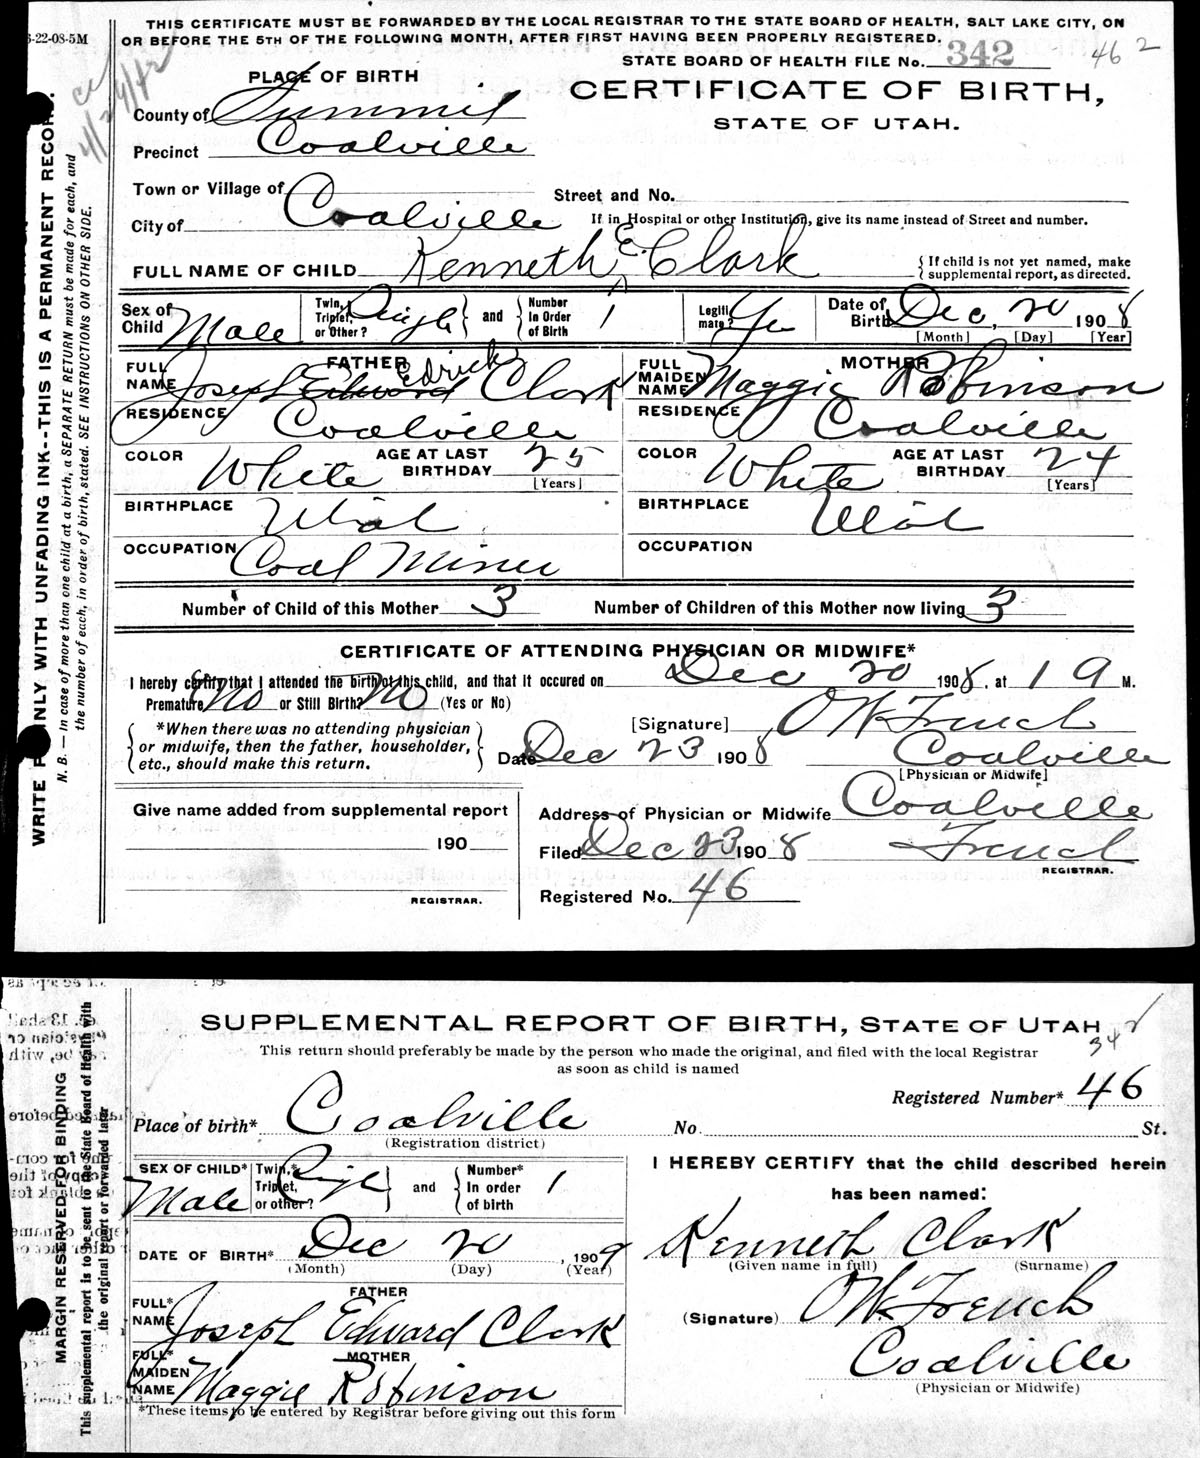 6-22-08-5M
THIS CERTIFICATE MUST BE FORWARDED BY THE LOCAL REGISTRAR TO THE STATE BOARD OF HEALTH, SALT LAKE CITY, ON
OR BEFORE THE 5TH OF THE FOLLOWING MONTH, AFTER FIRST HAVING BEEN PROPERLY REGISTERED.
STATE BOARD OF HEALTH FILE No. 342 46 2
PLACE OF BIRTH
CERTIFICATE OF BIRTH,
STATE OF UTAH.
County of Summit
Precinct Coalville
Town or Village of
Street and No.
City of Coalville
If in Hospital or other Institution, give its name instead of Street and number.
FULL NAME OF CHILD Kenneth E. Clark
{ If child is not yet named, make
supplemental report, as directed.
Sex of Child Male
Twin, Triplet, or Other? Single and Number In Order of Birth 1
Legitimate? Yes
Date of Birth Dec, 20 1908
[Month] [Day] [Year]
FATHER
FULL NAME Joseph Edward Edrick Clark
RESIDENCE Coalville
COLOR White AGE AT LAST BIRTHDAY 25
[Years]
BIRTHPLACE Utah
OCCUPATION Coal Miner
MOTHER
FULL MAIDEN NAME Maggie Robinson
RESIDENCE Coalville
COLOR White AGE AT LAST BIRTHDAY 24
[Years]
BIRTHPLACE Utah
OCCUPATION
Number of Child of this Mother 3 Number of Children of this Mother now living 3
CERTIFICATE OF ATTENDING PHYSICIAN OR MIDWIFE*
I hereby certify that I attended the birth of this child, and that it occured on Dec 20 1908, at 1 9 M.
Premature No or Still Birth? No (Yes or No)
*When there was no attending physician
or midwife, then the father, householder,
etc., should make this return.
[Signature] O W French
Date Dec 23 1908 Coalville
[Physician or Midwife]
Give name added from supplemental report
190
REGISTRAR.
Address of Physician or Midwife Coalville
Filed Dec 23 1908 French
REGISTRAR.
Registered No. 46
WRITE PLAINLY WITH UNFADING INK--THIS IS A PERMANENT RECORD.
N. B. — In case of more than one child at a birth, a SEPARATE RETURN must be made for each, and
the number of each, in order of birth, stated. SEE INSTRUCTIONS ON OTHER SIDE.
SUPPLEMENTAL REPORT OF BIRTH, STATE OF UTAH
342
This return should preferably be made by the person who made the original, and filed with the local Registrar
as soon as child is named
Registered Number* 46
Place of birth* Coalville No. St.
(Registration district)
SEX OF CHILD* Male
Twin,* Triplet, or other? Single and Number* In order of birth 1
DATE OF BIRTH* Dec 20, 1909
(Month) (Day) (Year)
FATHER
FULL* NAME Joseph Edward Clark
MOTHER
FULL* MAIDEN NAME Maggie Robinson
*These items to be entered by Registrar before giving out this form
I HEREBY CERTIFY that the child described herein
has been named:
Kenneth Clark
(Given name in full) (Surname)
(Signature) O W French
Coalville
(Physician or Midwife)
MARGIN RESERVED FOR BINDING
This supplemental report is to be sent to the State Board of Health with
the original report or forwarded later